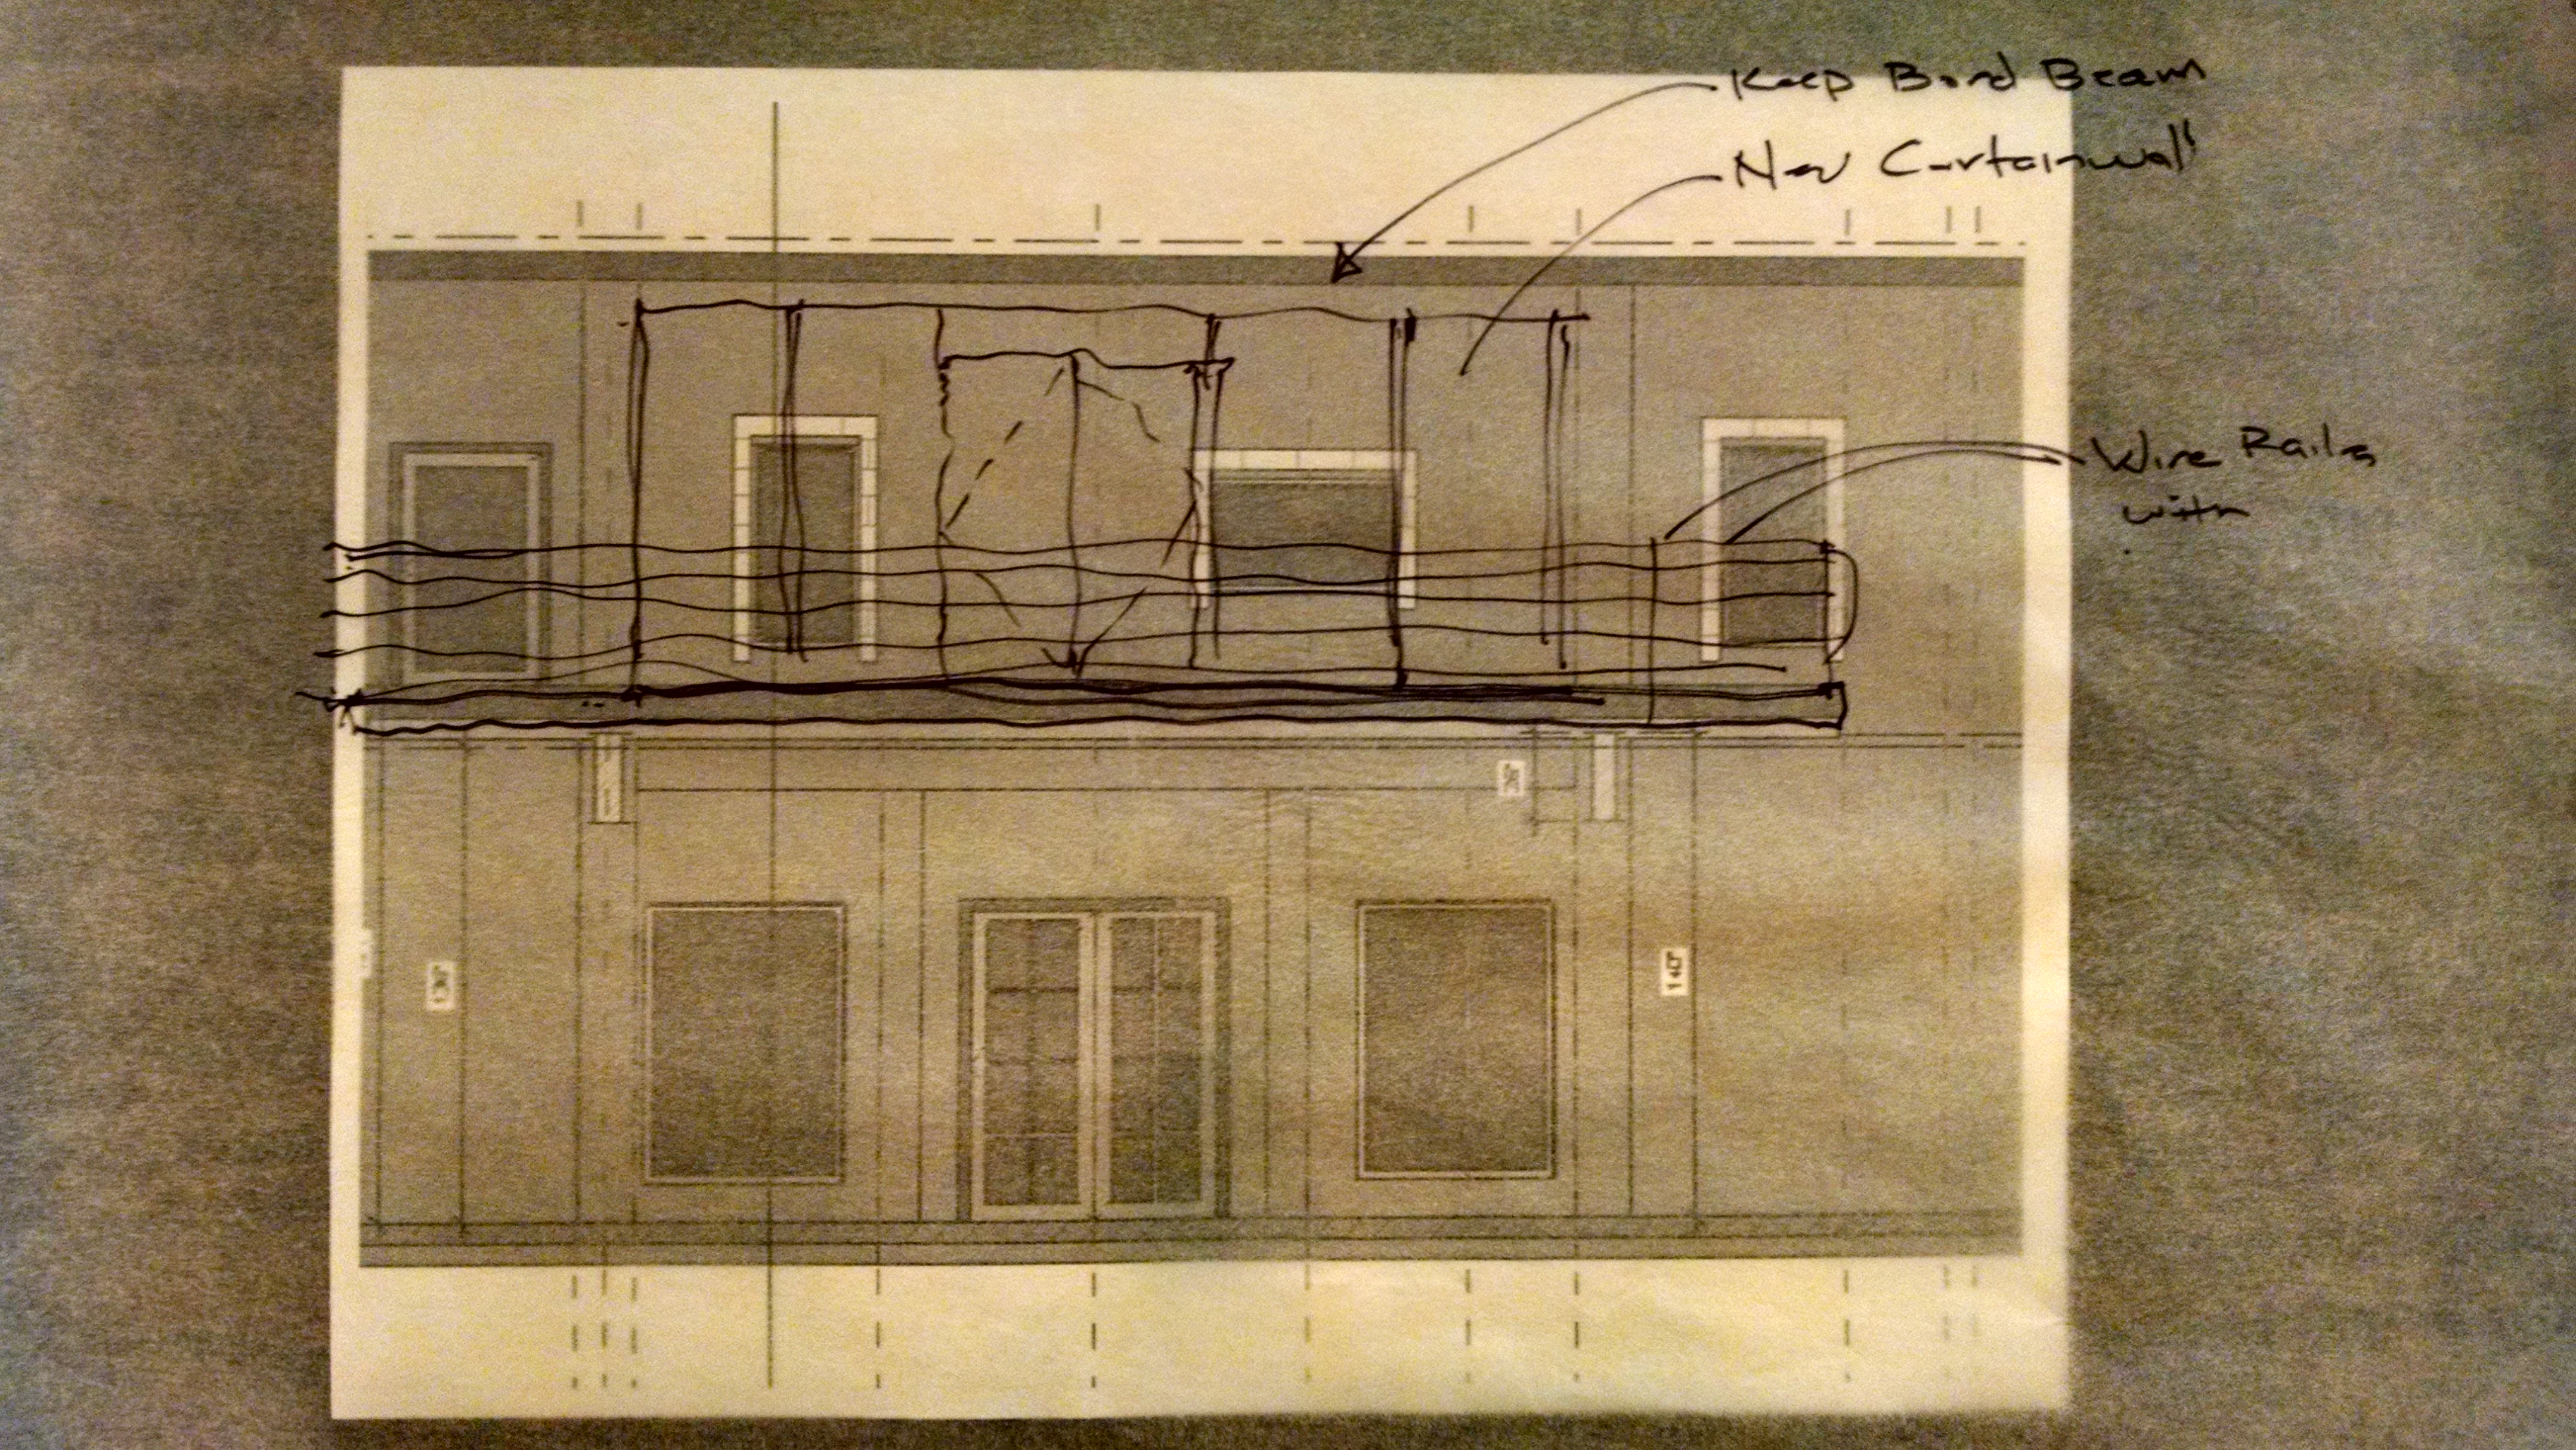 Keep Bond Beam
New Curtainwall
Wire Rails
with